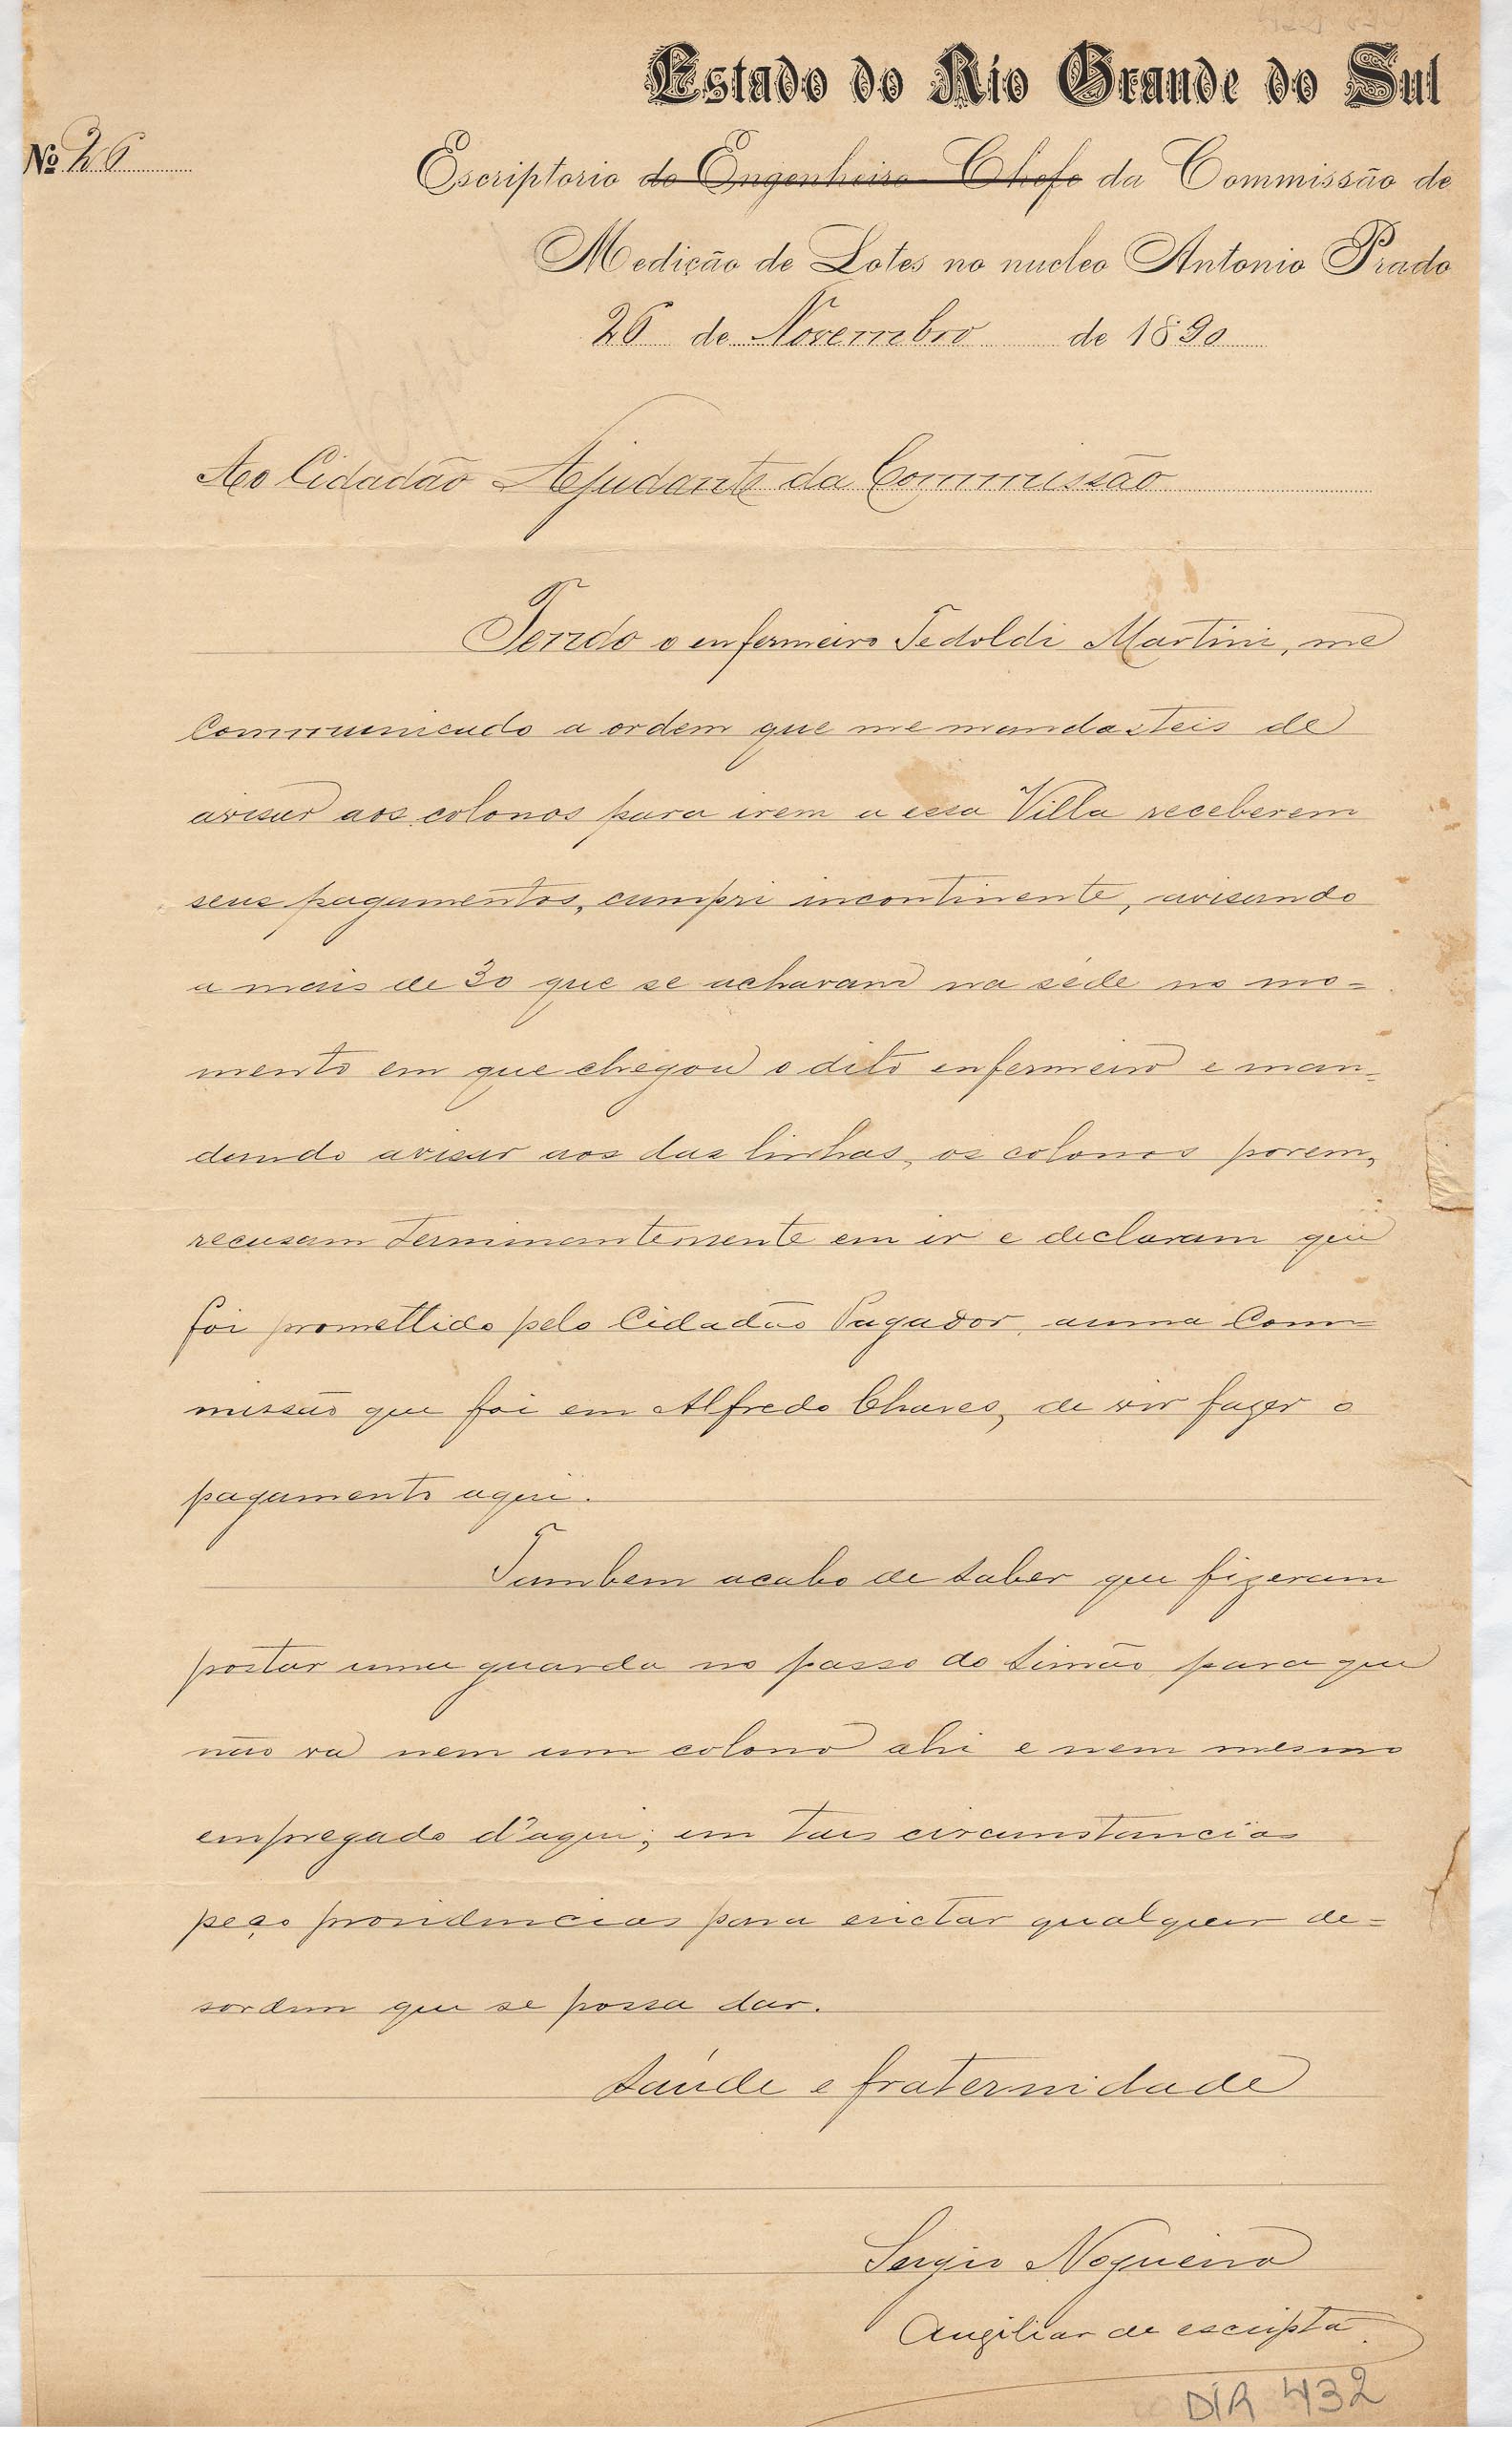 Estado do Rio Grande do Sul
Nº 26
Escriptorio do Engenheiro Chefe da Commissão de
Medição de Lotes no nucleo Antonio Prado
26 de Novembro de 1890
Ao Cidadão Ajudante da Commissão
Tendo o enfermeiro Tedoldi Martini, me
communicado a ordem que me mandasteis de
avisar aos colonos para irem a essa Villa receberem
seus pagamentos, cumpri incontinente, avisando
a mais de 30 que se acharam na séde no mo=
mento em que chegou o dito enfermeiro e man=
dando avisar aos das linhas, os colonos porem,
recusam terminantemente em ir e declaram que
foi promettido pelo Cidadão Pagador, a uma Com=
missão que foi em Alfredo Chaves, de vir fazer o
pagamento aqui.
Tambem acabo de saber que fizeram
postar uma guarda no passo do Simão para que
não va nem um colono ahi e nem mesmo
empregado d'aqui; em taes circumstancias
peço providencias para evictar qualquer de=
sordem que se possa dar.
Saúde e fraternidade
Sergio Nogueira
Auxiliar de escripta
DIR 432